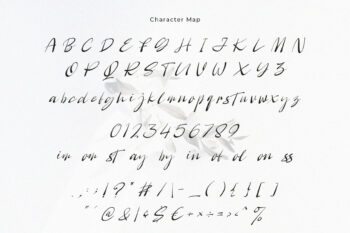 Character Map
A B C D E F G H I J K L M N
O P Q R S T U V W X Y Z
a b c d e f g h i j k l m n o p q r s t u v w x y z
0 1 2 3 4 5 6 7 8 9
ir or st ay by in of ol on ss
. , : ; ! ? " # / \ - _ ( ) { } [ ]
" ' @ & | $ € + × ÷ = > < ^ %